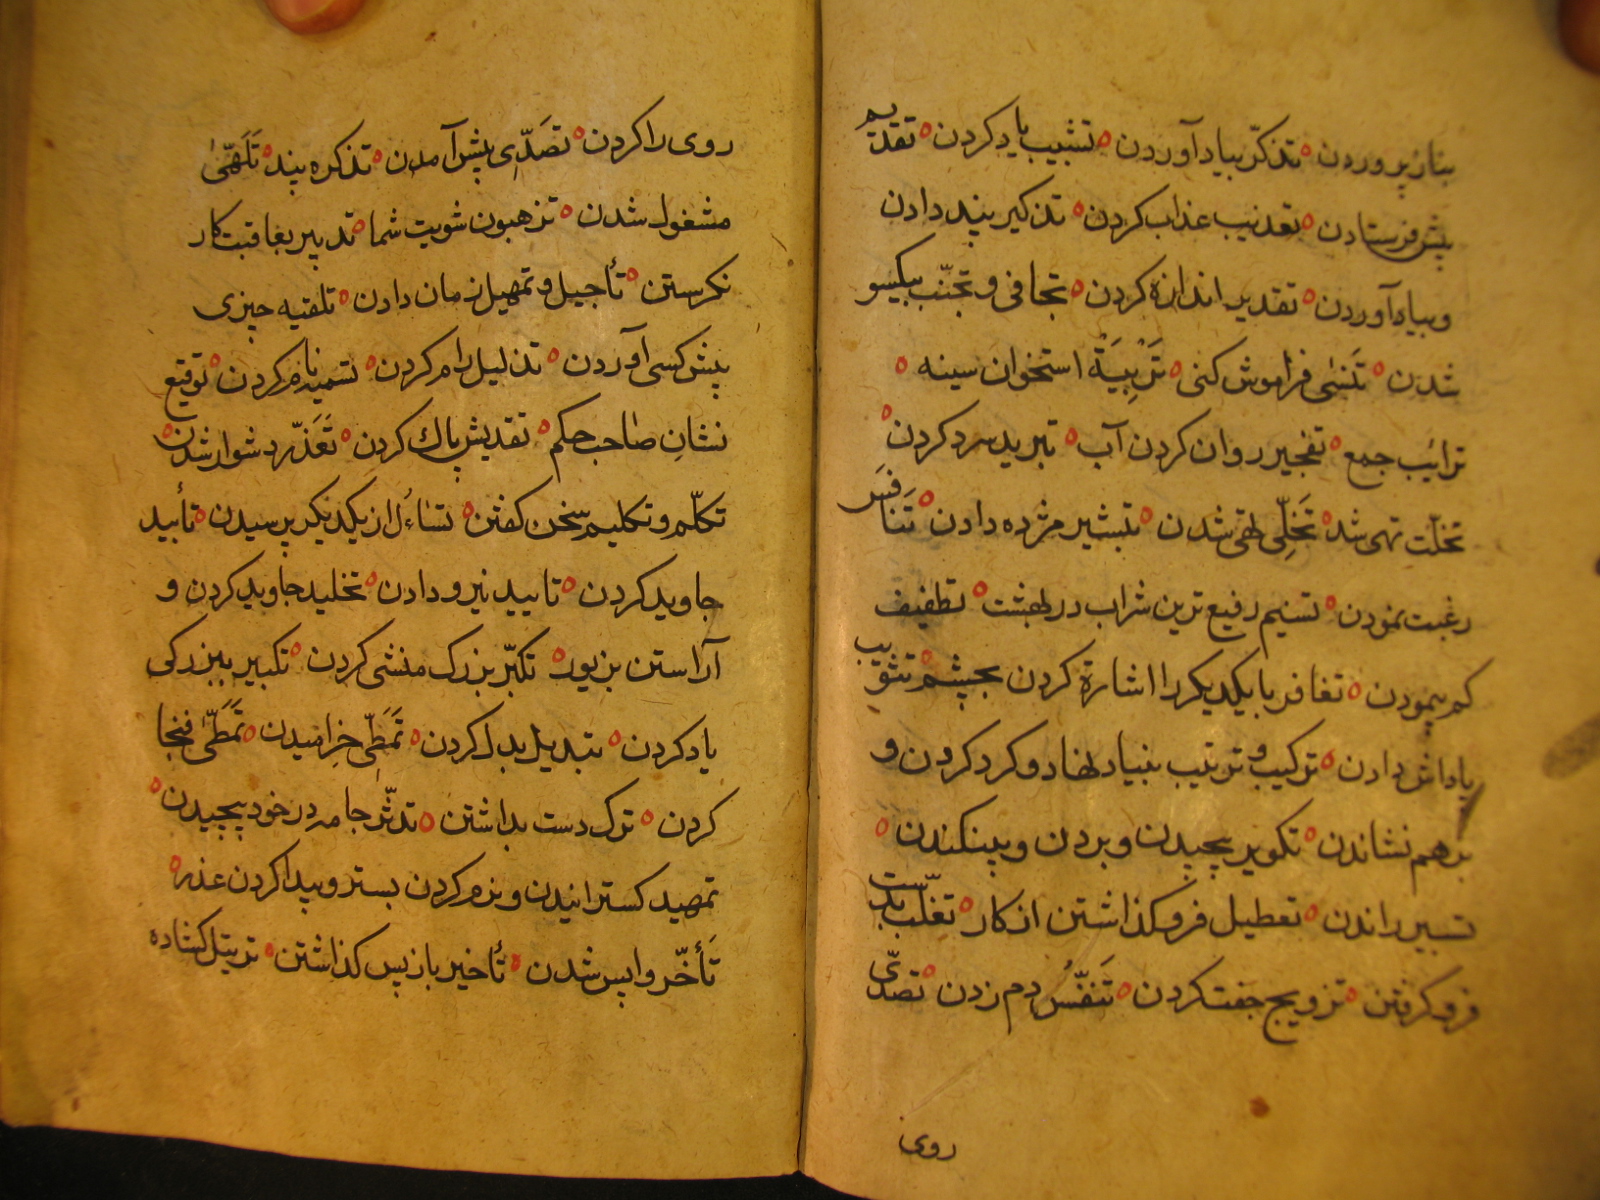 بناز پروردن ٥ تذکّر بیاد آوردن ٥ تشبیب یاد کردن ٥ تقدیم
پیش فرستادن ٥ تعذیب عذاب کردن ٥ تذکیر پند دادن
و بیاد آوردن ٥ تقدیر اندازه کردن ٥ تجافی و تجنّب بیکسو
شدن ٥ تَنسٰی فراموش کنی ٥ تَرْبِیَةْ استخوان سینه ٥
ترائب جمع ٥ تفجیر روان کردن آب ٥ تبرید سرد کردن ٥
تخلّت تهی شد ٥ تَخَلِّی تهی شدن ٥ تبشیر مژده دادن ٥ تَنافَس
رغبت نمودن ٥ تسنیم رفیع ترین شراب در بهشت ٥ تطفیف
کم پیمودن ٥ تغافر با یکدیکر را اشارة کردن بچشم ٥ تثویب
پاداش دادن ٥ ترکیب و ترتیب بنیاد نهاد و کرد کردن و
برهم نشاندن ٥ تکویر پیچیدن و بردن و بیفکندن ٥
تسییر راندن ٥ تعطیل فروکذاشتن از کار ٥ تغلّب بدست
فرو کرفتن ٥ تزویج جفت کردن ٥ تَنَفّسُ دم زدن ٥ تصدّی
روی
روی را کردن ٥ تَصَدّی پیش آمدن ٥ تذکره پند ٥ تَلَهّیٰ
مشغول شدن ٥ تزهبون شویت شما ٥ تدبیر بعاقبت کار
نکرستن ٥ تأجیل و تمهیل زمان دادن ٥ تلقیه چیزی
پیش کسی آوردن ٥ تذلیل رام کردن ٥ تسمیه نام کردن ٥ توقیع
نشانِ صاحب حکم ٥ تقدیس پاك کردن ٥ تَعَذّر دشوار شدن ٥
تکلّم و تکلیم سخن کفتن ٥ تساءُل از یکدیکر پرسیدن ٥ تأبید
جاوید کردن ٥ تایید نیرو دادن ٥ تخلید جاوید کردن و
آراستن بزیور ٥ تکبّر بزرک منشی کردن ٥ تکبیر ببزرکی
یاد کردن ٥ تبدیل بدل کردن ٥ تَمَطّی خرامیدن ٥ تَمَطّیٰ
کردن ٥ ترک دست بداشتن ٥ تدثّر جامه در خود پیچیدن ٥
تمهید کسترانیدن و نرم کردن بستر و پیدا کردن عذر ٥
تَأخّر واپس شدن ٥ تُاخیر باز پس کذاشتن ٥ ترتیل کشاده